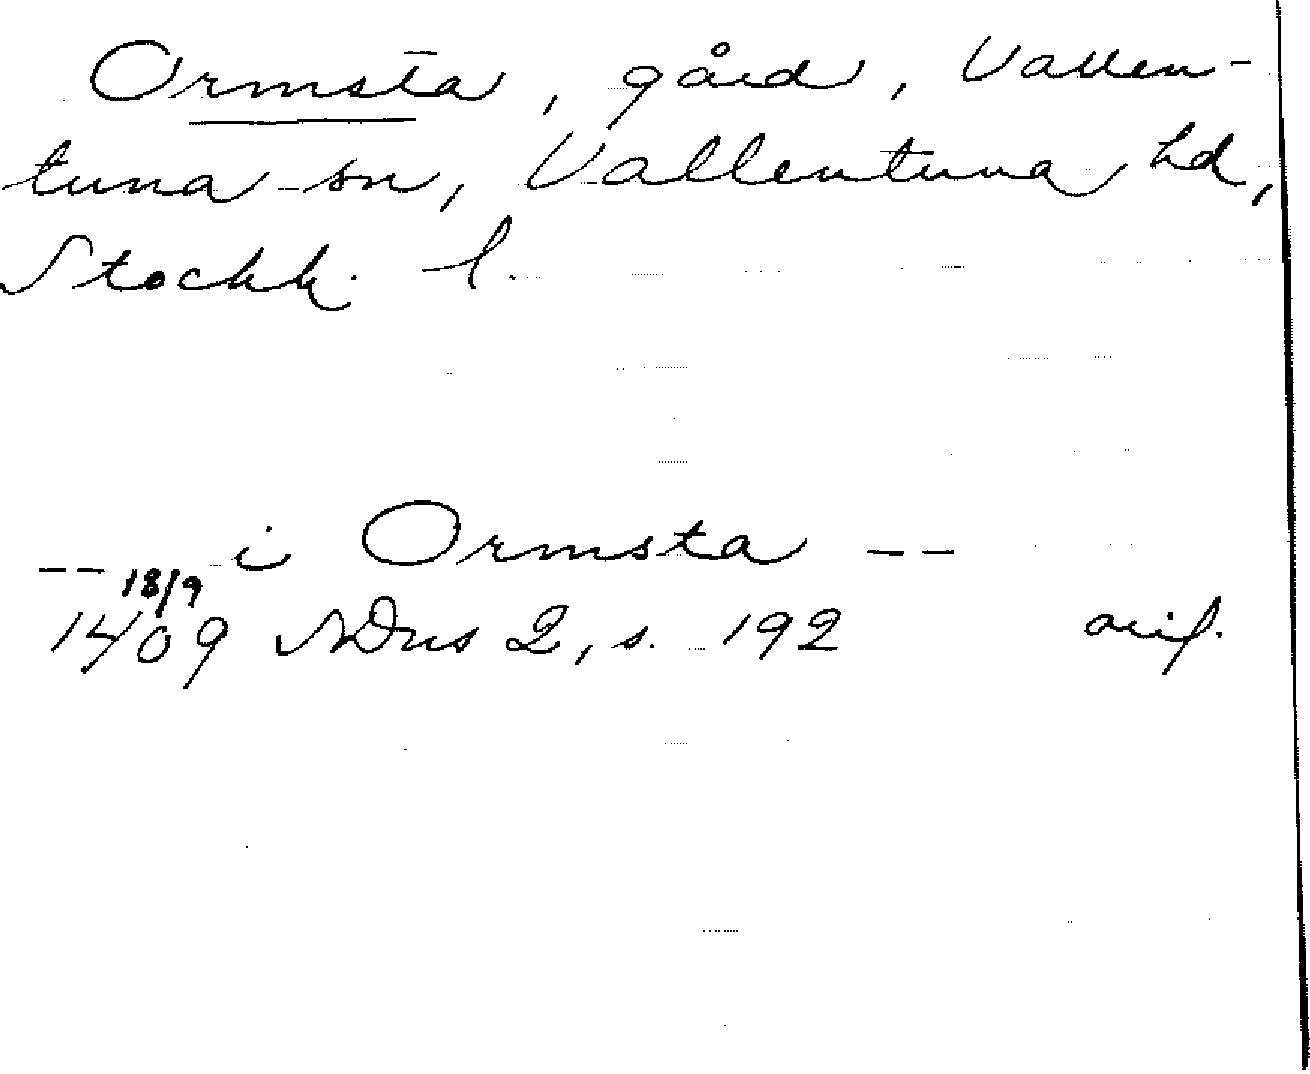 Ormsta, gård, Vallen-
tuna sn, Vallentuna hd,
Stockh. l.
-- i Ormsta --
18/9
1409 SDns 2, s. 192 orig.